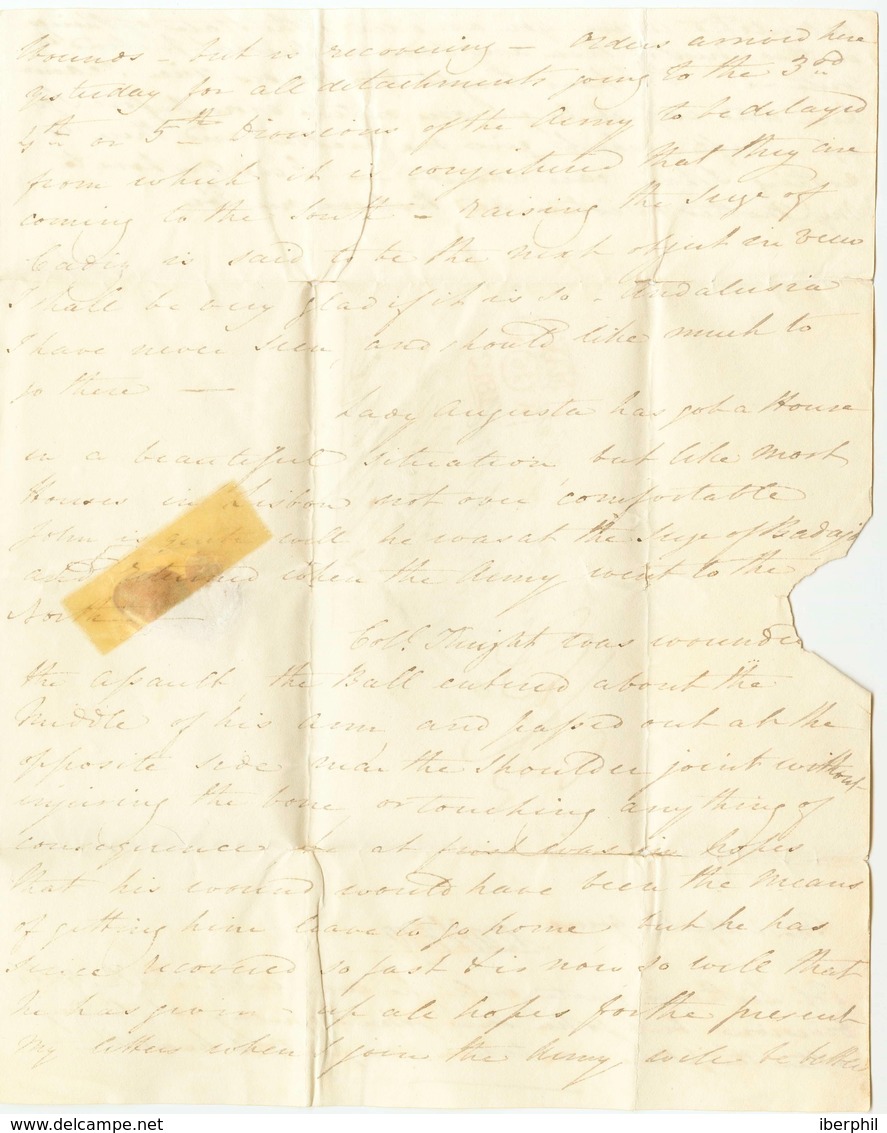 Wounds - but is recovering - Orders arrived here
yesterday for all detachments going to the 3rd
4th or 5th Divisions of the Army to be delayed
from which it is conjectured that they are
coming to the South - raising the Siege of
Cadiz is said to be the next object in view
I shall be very glad if it is so - Andalusia
I have never seen, and should like much to
go there —
Lady Augusta has got a House
in a beautiful situation but like most
Houses in Lisbon not over comfortable
John is quite well he was at the Siege of Badajo
and returned when the Army went to the
North —
Coll. Knight was wounde
the assault, the Ball entered about the
Middle of his arm and passed out at the
opposite side near the shoulder joint without
injuring the bone, or touching anything of
consequence he at first was in hopes
that his wound would have been the means
of getting him leave to go home but he has
since recovered so fast & is now so well that
he has given - up all hopes for the present
My letters when I join the Army will be better
www.delcampe.net
iberphil